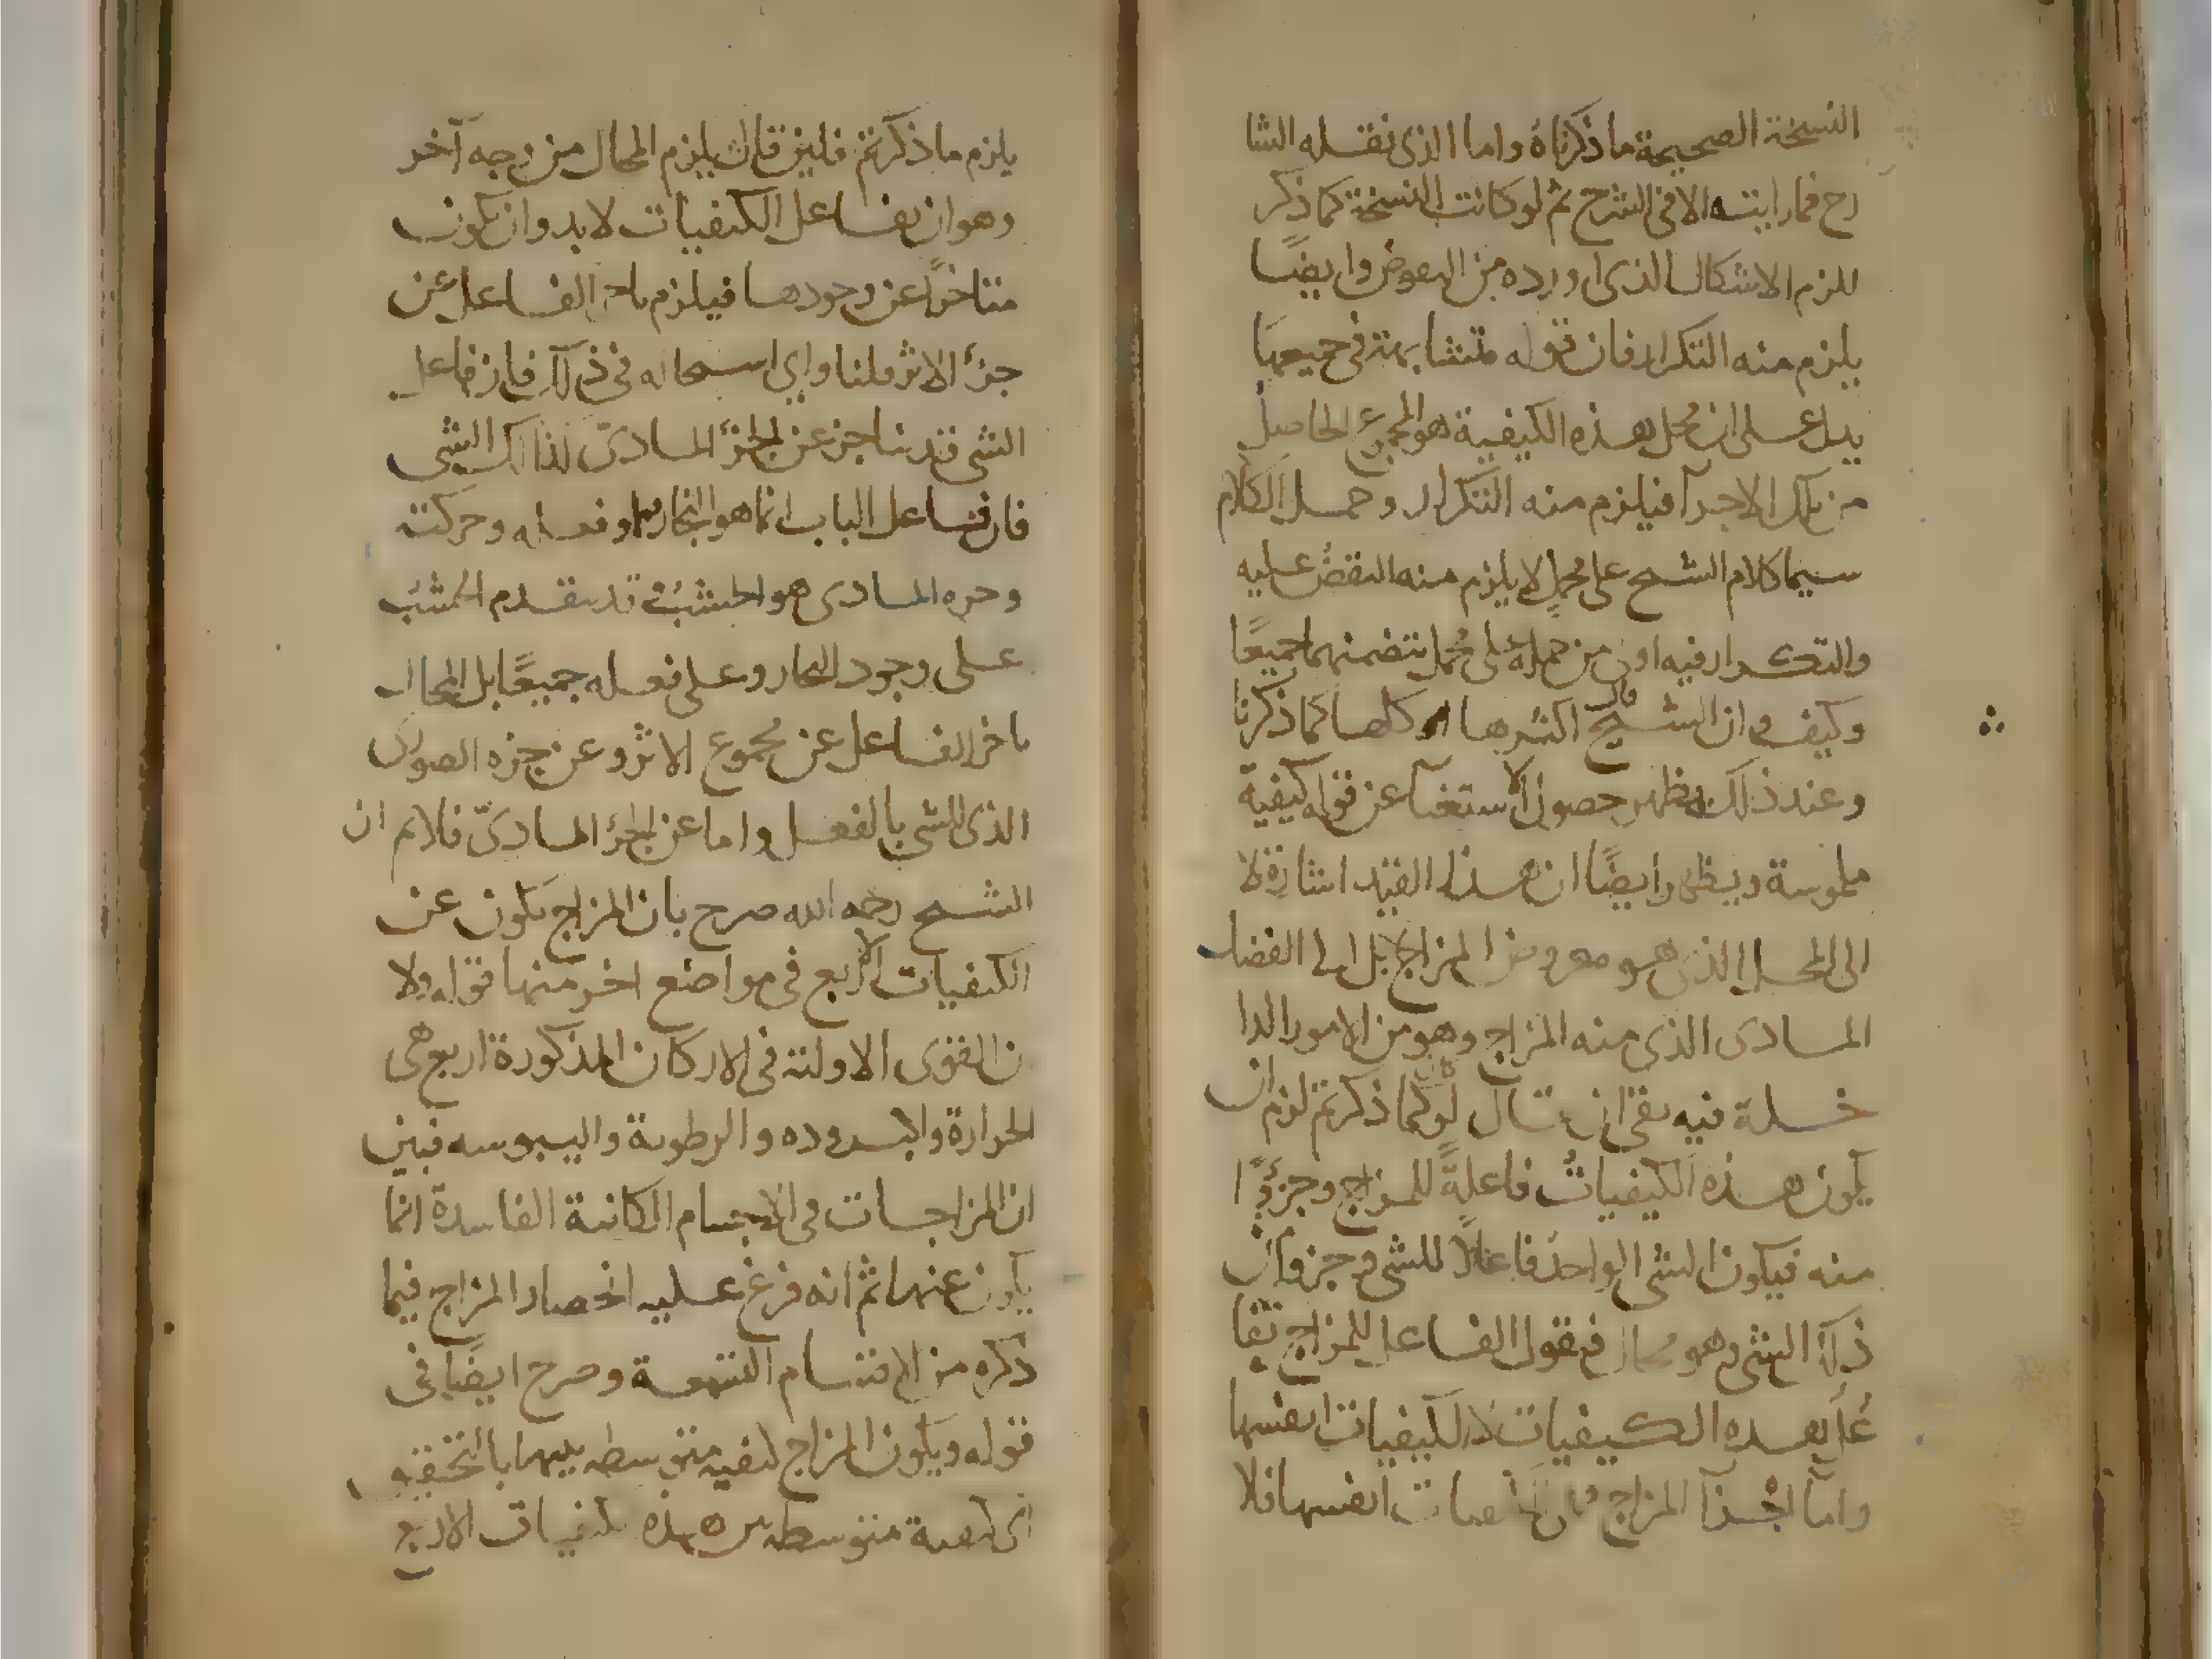 النسخة الصحيحة ما ذكرناه واما الذى نقله الشا
رح فما رايته الا فى الشرح ثم لو كانت النسخة كما ذكر
للزم الاشكال الذى اورده من المعوض وايضًا
يلزم منه التكرار فان قوله متشابهة فى جميعها
يدل على ان محل هذه الكيفية هو المجموع الحاصل
من تلك الاجزآ فيلزم منه التكرار وحمل الكلام
سيما كلام الشيخ على محمل لا يلزم منه النقض عليه
والتكرار فيه اولى من حمله على محمل يتضمنهما جميعًا
وكيف وان الشيخ قال اكثرها او كلها كما ذكرنا
وعند ذلك يظهر حصول الاستغنآ عن قوله كيفية
ملموسة ويظهر ايضًا ان هذا القيد اشارة لا
الى المحل الذى هو معروض المزاج بل الى الفضل
المادى الذى منه المزاج وهو من الامور الدا
خلة فيه بقى ان يقال لو كان كما ذكرتم لزم ان
يكون هذه الكيفيات فاعلةً للمزاج وجزءًا
منه فيكون الشى الواحد فاعلاً للشى وجزؤ
ذلك الشى وهو محال فنقول الفاعل للمزاج تفا
عل هذه الكيفيات لا الكيفيات انفسها
واما اجزآ المزاج الكيفيات انفسها فلا
يلزم ما ذكرتم فلين قلت يلزم المحال من وجه آخر
وهو ان تفاعل الكيفيات لا بد وان يكون
متاخرًا عن وجودها فيلزم تاخر الفاعل عن
جزء الاثر قلنا واى استحالة فى ذلك فان فاعل
الشى قد يتاخر عن الجزء المادىّ لذلك الشى
فان فاعل الباب انما هو النجار وفعله وحركته
وجزه المادى هو الخشب وقد يتقدم الخشب
على وجود النجار وعلى فعله جميعًا بل المحال
تاخر الفاعل عن مجموع الاثر وعن جزه الصورى
الذى للشى بالفعل واما عن الجزء المادىّ فلا ثم ان
الشيخ رحمه الله صرح بان المزاج يكون عن
الكيفيات الاربع فى مواضع اخر منها قوله ولا
ن القوى الاولية فى الاركان المذكورة اربع هى
الحرارة والبرودة والرطوبة واليبوسة فبين
ان المزاجات فى الاجسام الكائنة الفاسدة انما
يكون عنها ثم انه فرغ عليه انحصار المزاج فيما
ذكره من الاقسام التسعة وصرح ايضًا فى
قوله ويكون المزاج كيفية متوسطة بينهما بالتحقيق
اى كيفية متوسطة بين هذه الكيفيات الاربع